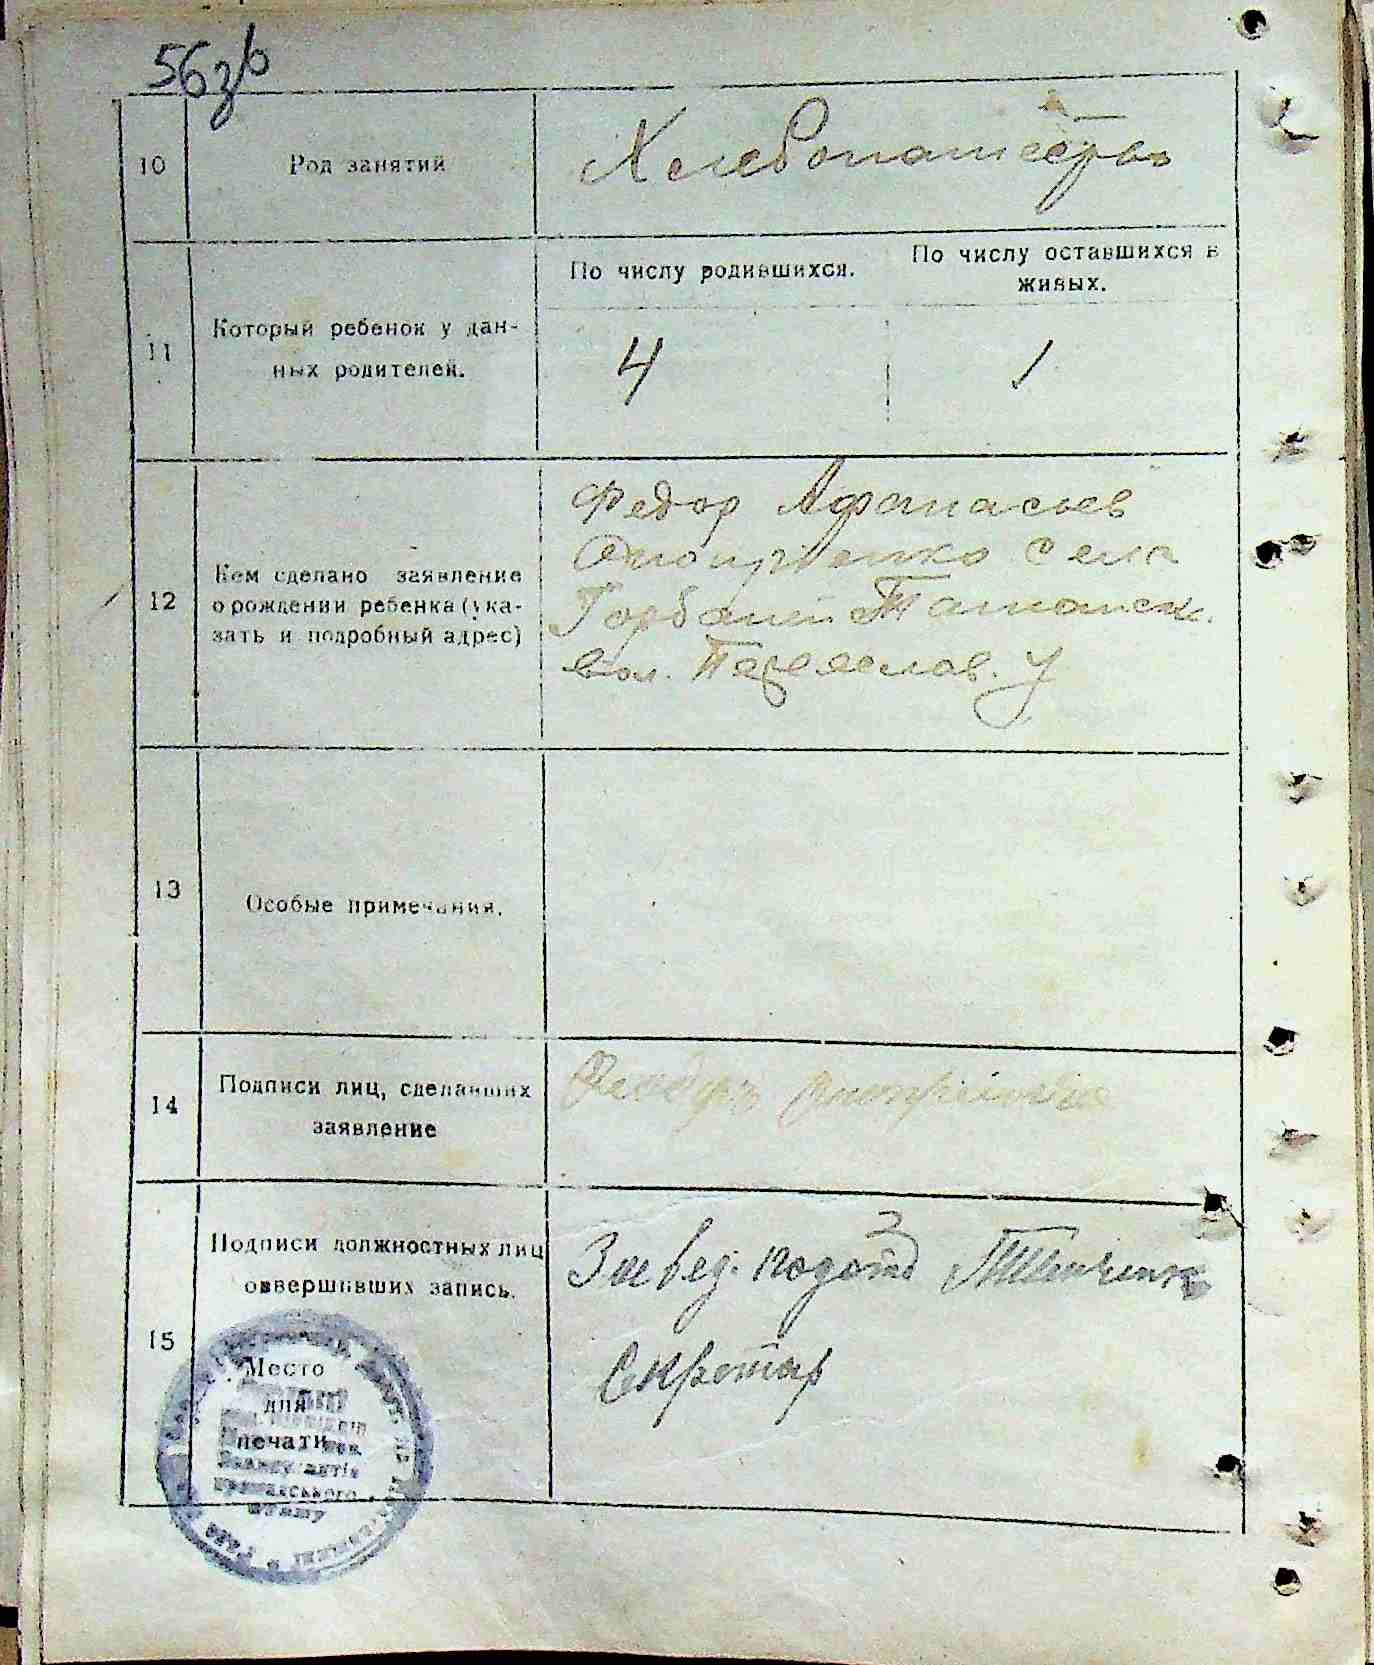 56зв
10
Род занятий
Хлебопашество
11
Который ребенок у дан-
ных родителей.
По числу родившихся.
По числу оставшихся в
живых.
4
1
12
Кем сделано заявление
о рождении ребенка (ука-
зать и подробный адрес)
Федор Афанасьев
села
Горбаней Ташанск.
вол. Переяслав. у
13
Особые примечания.
14
Подписи лиц, сделавших
заявление
15
Подписи должностных лиц
совершивших запись.
Место
для
печати
Завед. подотд
Секретар